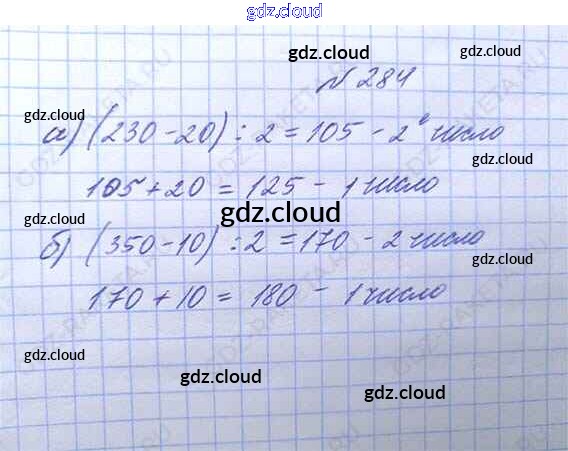 gdz.cloud
gdz.cloud
№ 284
gdz.cloud
а) (230 - 20) : 2 = 105 - 2 число
gdz.cloud
105 + 20 = 125 - 1 число
gdz.cloud
gdz.cloud
б) (350 - 10) : 2 = 170 - 2 число
gdz.cloud
170 + 10 = 180 - 1 число
gdz.cloud
gdz.cloud
gdz.cloud
gdz.cloud